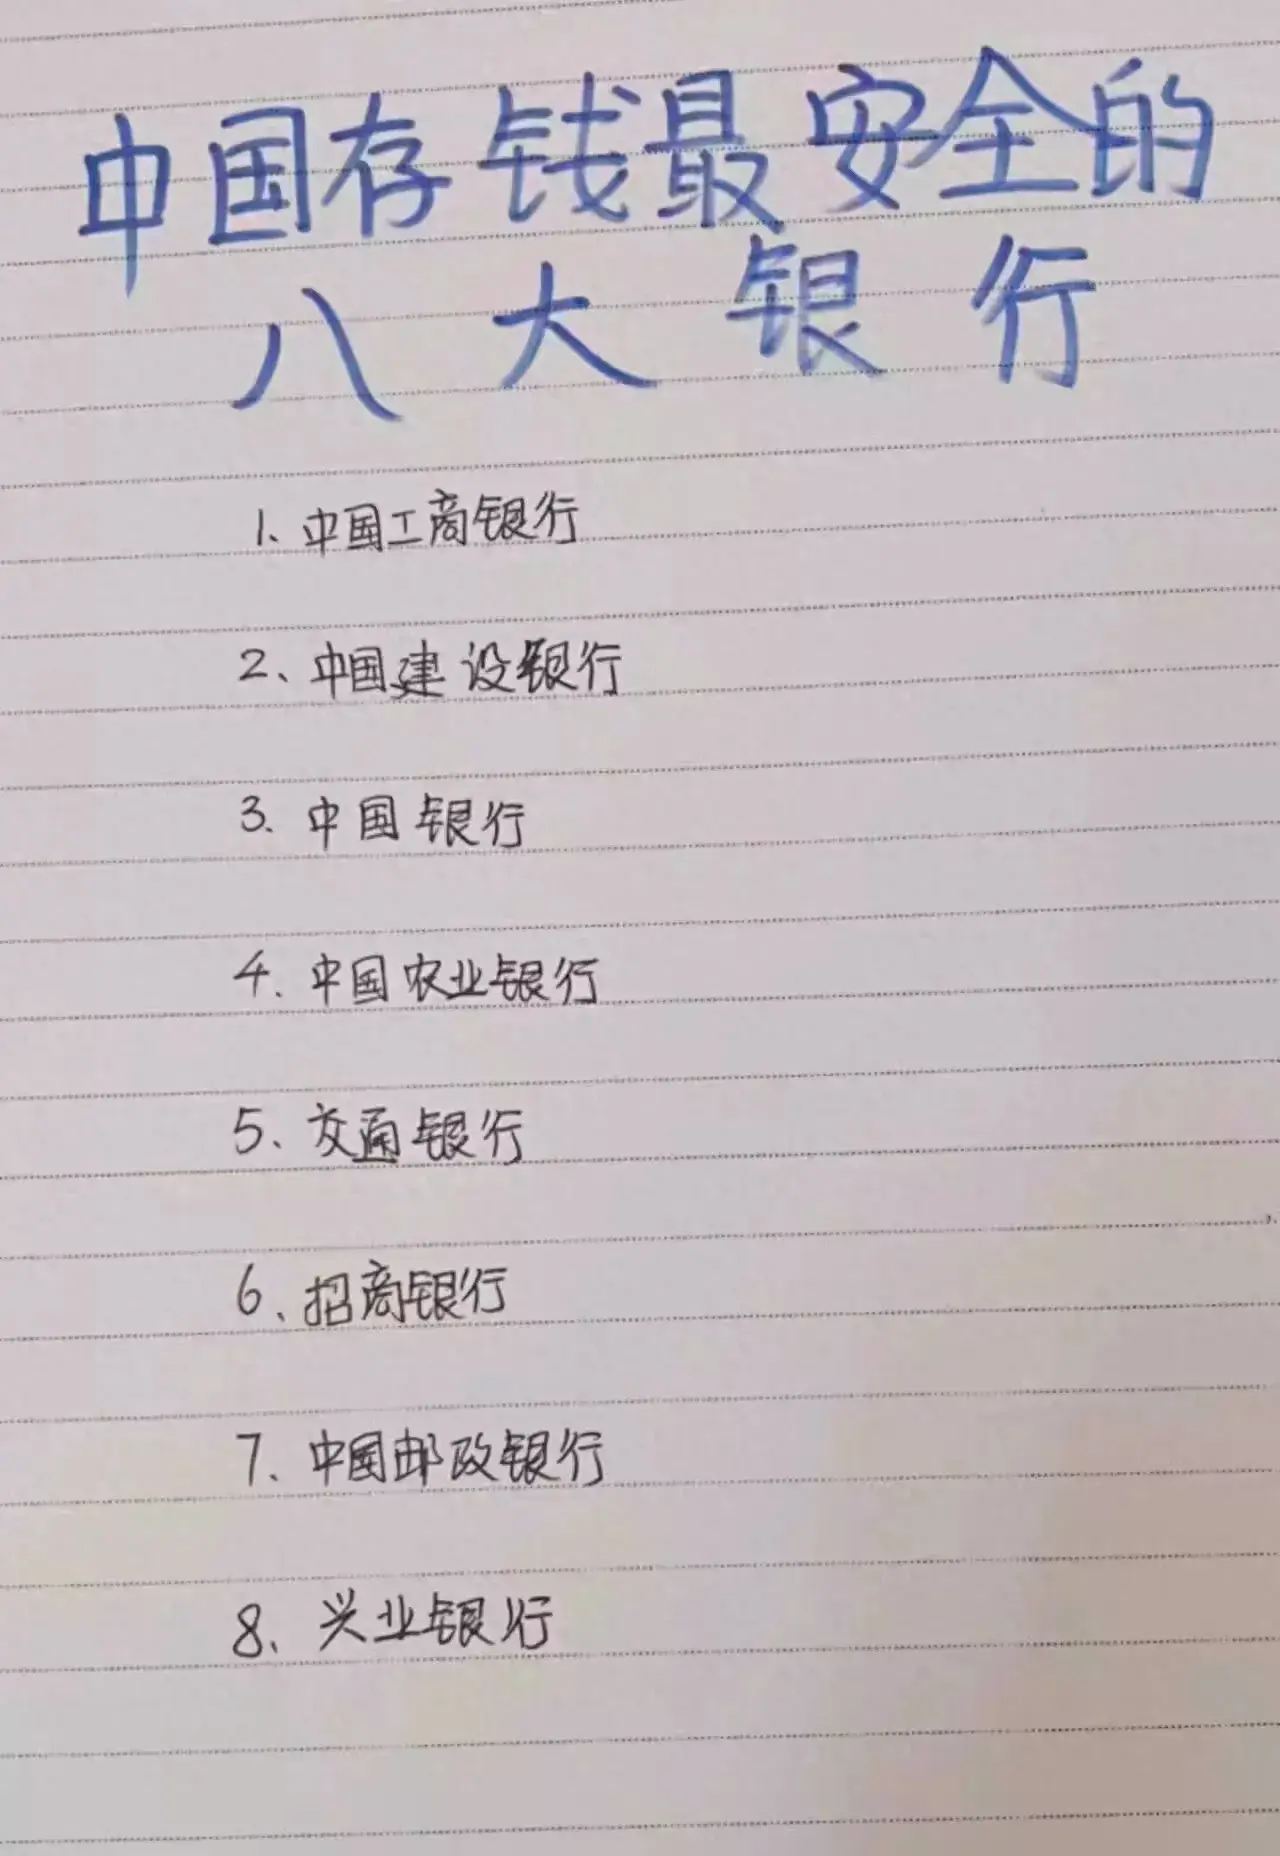 中国存钱最安全的
八大银行
1、中国工商银行
2、中国建设银行
3、中国银行
4、中国农业银行
5、交通银行
6、招商银行
7、中国邮政银行
8、兴业银行